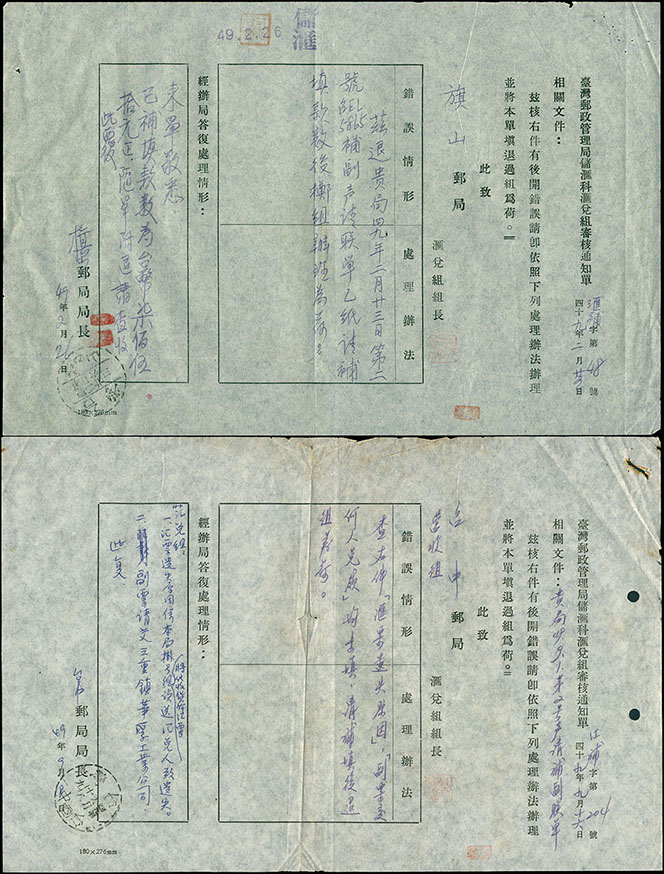 臺灣郵政管理局儲滙科滙兌組審核通知單
滙補字第48號
四十九年二月廿五日
相關文件：
茲核右件有後開錯誤請卽依照下列處理辦法辦理
並將本單填退過組爲荷。
此致
旗山郵局
滙兌組組長
錯誤情形
處理辦法
茲退貴局四九年二月廿三日第二
號補副声请联單乙纸請補
填款数後擲組辦理為荷。
49.2.26
儲滙
經辦局答復處理情形：
来單敬悉
已補填款数為台幣柒佰伍
拾元正滙單附還請查收
此覆
郵局局長
49年2月26日
180×276mm
臺灣郵政管理局儲滙科滙兌組審核通知單
字第204號
四十九年九月十六日
相關文件：貴局請補副联單
茲核右件有後開錯誤請卽依照下列處理辦法辦理
並將本單填退過組爲荷。
此致
台中郵局
營收組
滙兌組組長
錯誤情形
處理辦法
查右件「滙票遺失原因」，「副票交
何人兌厥」均未填請補填後退
組為荷。
經辦局答復處理情形：
汇兑组：
一、汇票遗失原因係本局挂号函误送汇兑人致遗失。
二、副票请交三重鎮華孚工業公司，
此复
郵局局長
49年9月日
180×276mm